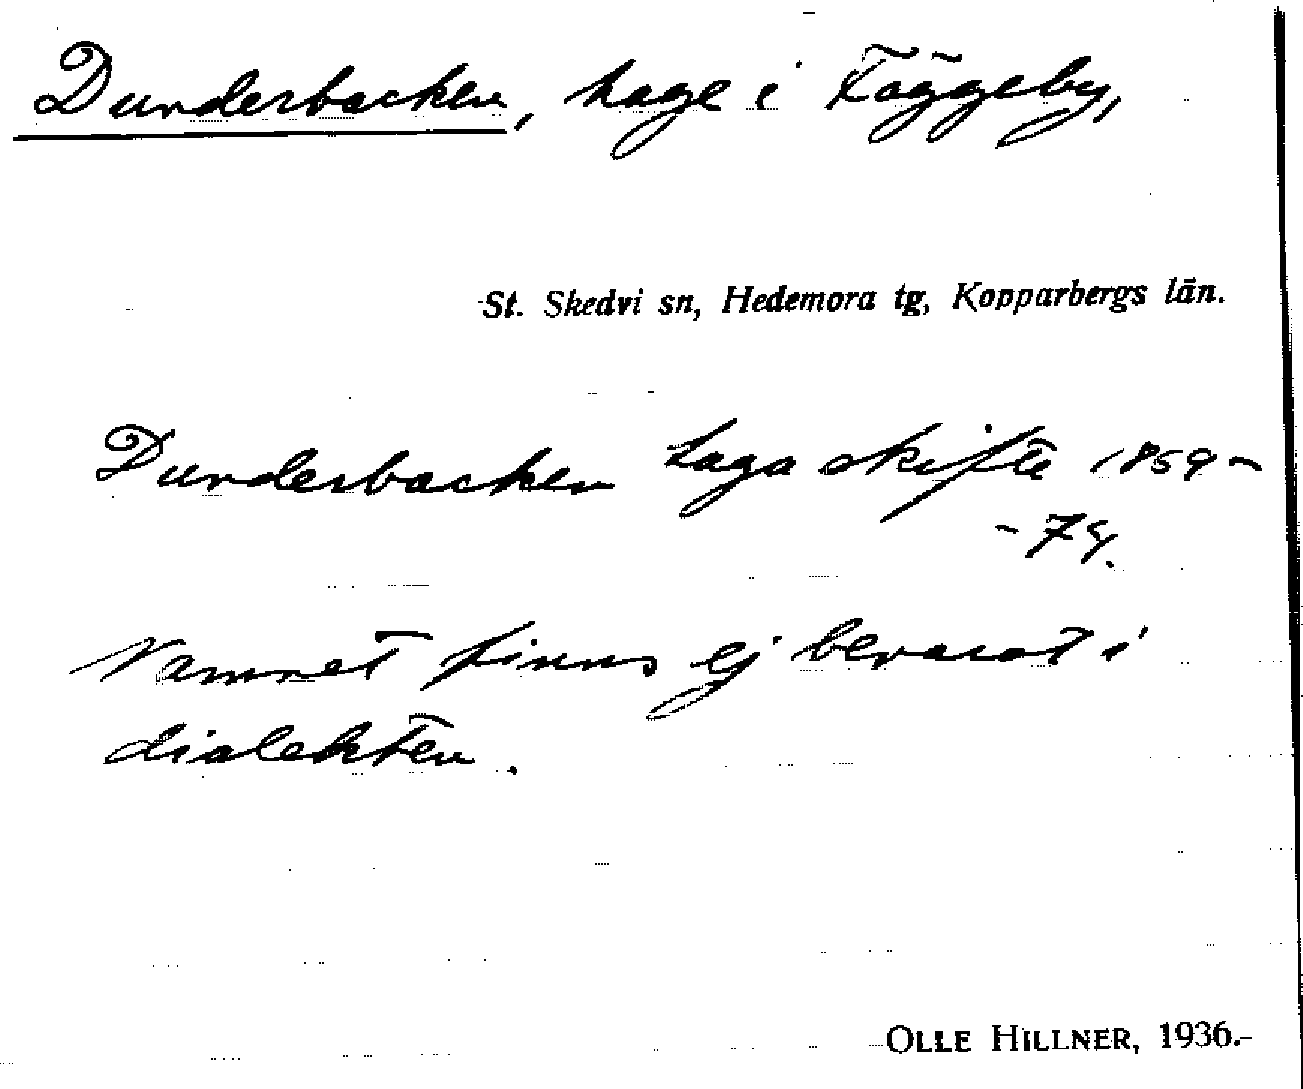 Dunderbacken, hage i Täggeby,
St. Skedvi sn, Hedemora tg, Kopparbergs län.
Dunderbacken Laga skifte 1859-
-74.
Namnet finns ej bevarat i
dialekten.
OLLE HILLNER, 1936.